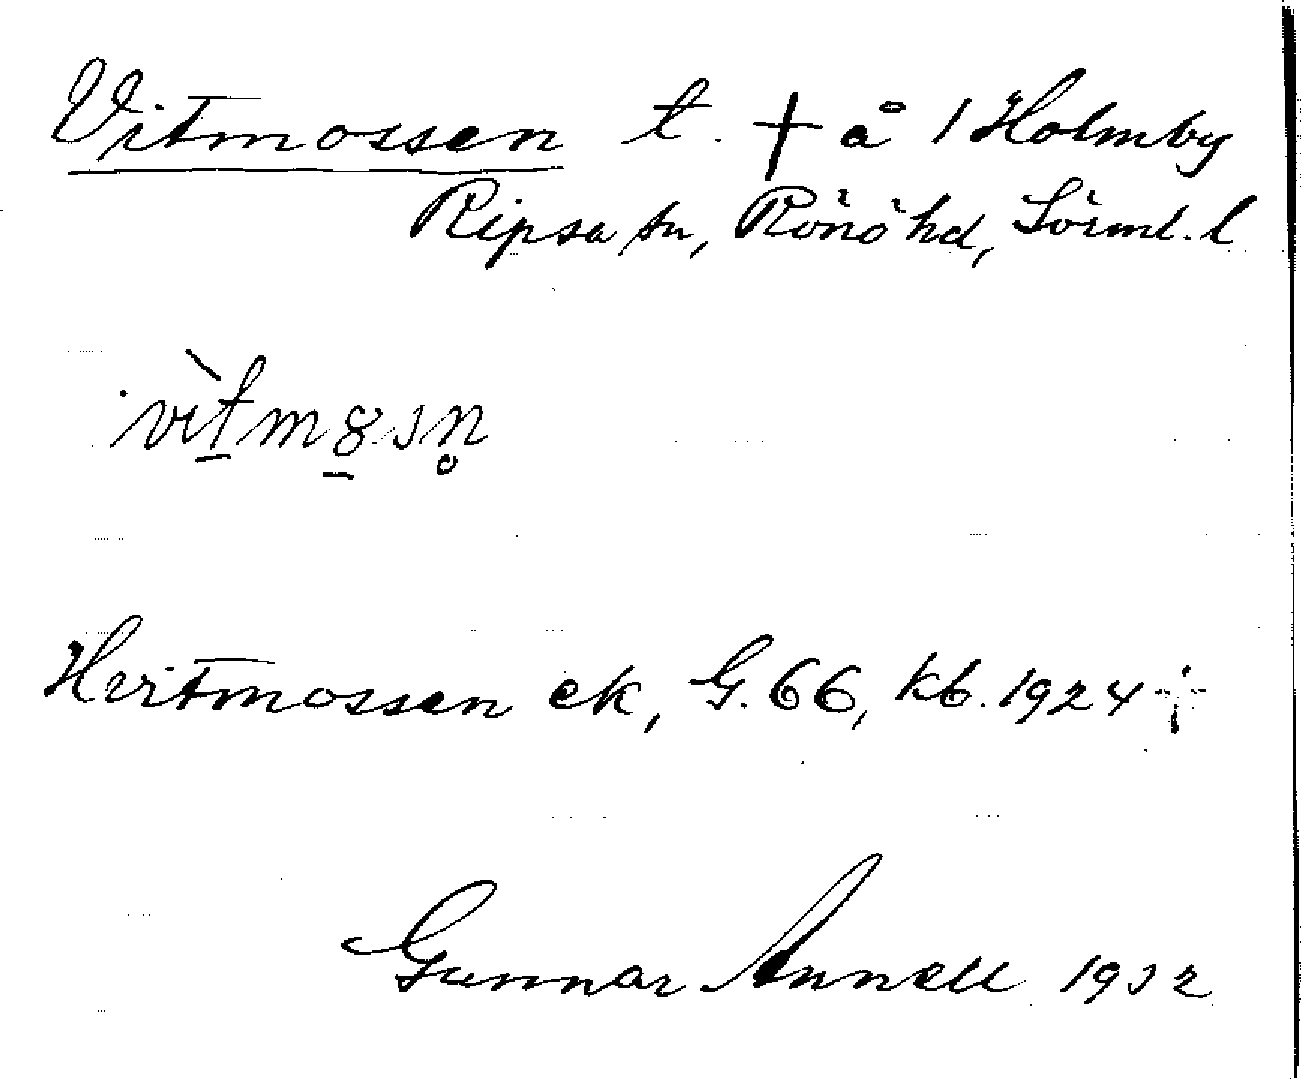 Vitmossen t. † å 1 Holmby
Ripsa sn, Rönö hd, Sörml. l
Hvitmossen ek, G. 66, kb. 1924 †
Gunnar Annell 1932